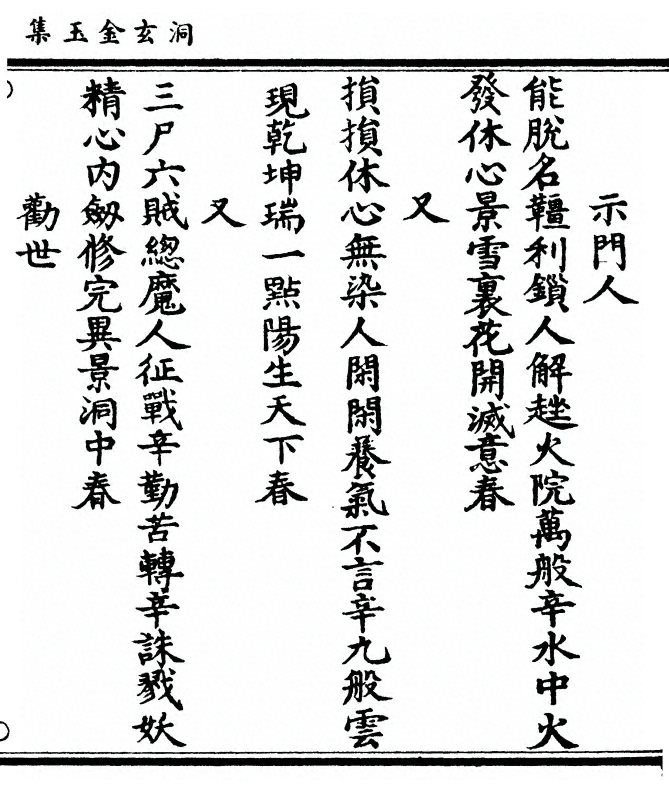 洞玄金玉集
示門人
能脫名韁利鎖人解趖火院萬般辛水中火
發休心景雪裏花開滅意春
又
損損休心無染人閑閑養氣不言辛九般雲
現乾坤瑞一點陽生天下春
又
三尸六賊總魔人征戰辛勤苦轉辛誅戮妖
精心內劒修完異景洞中春
勸世